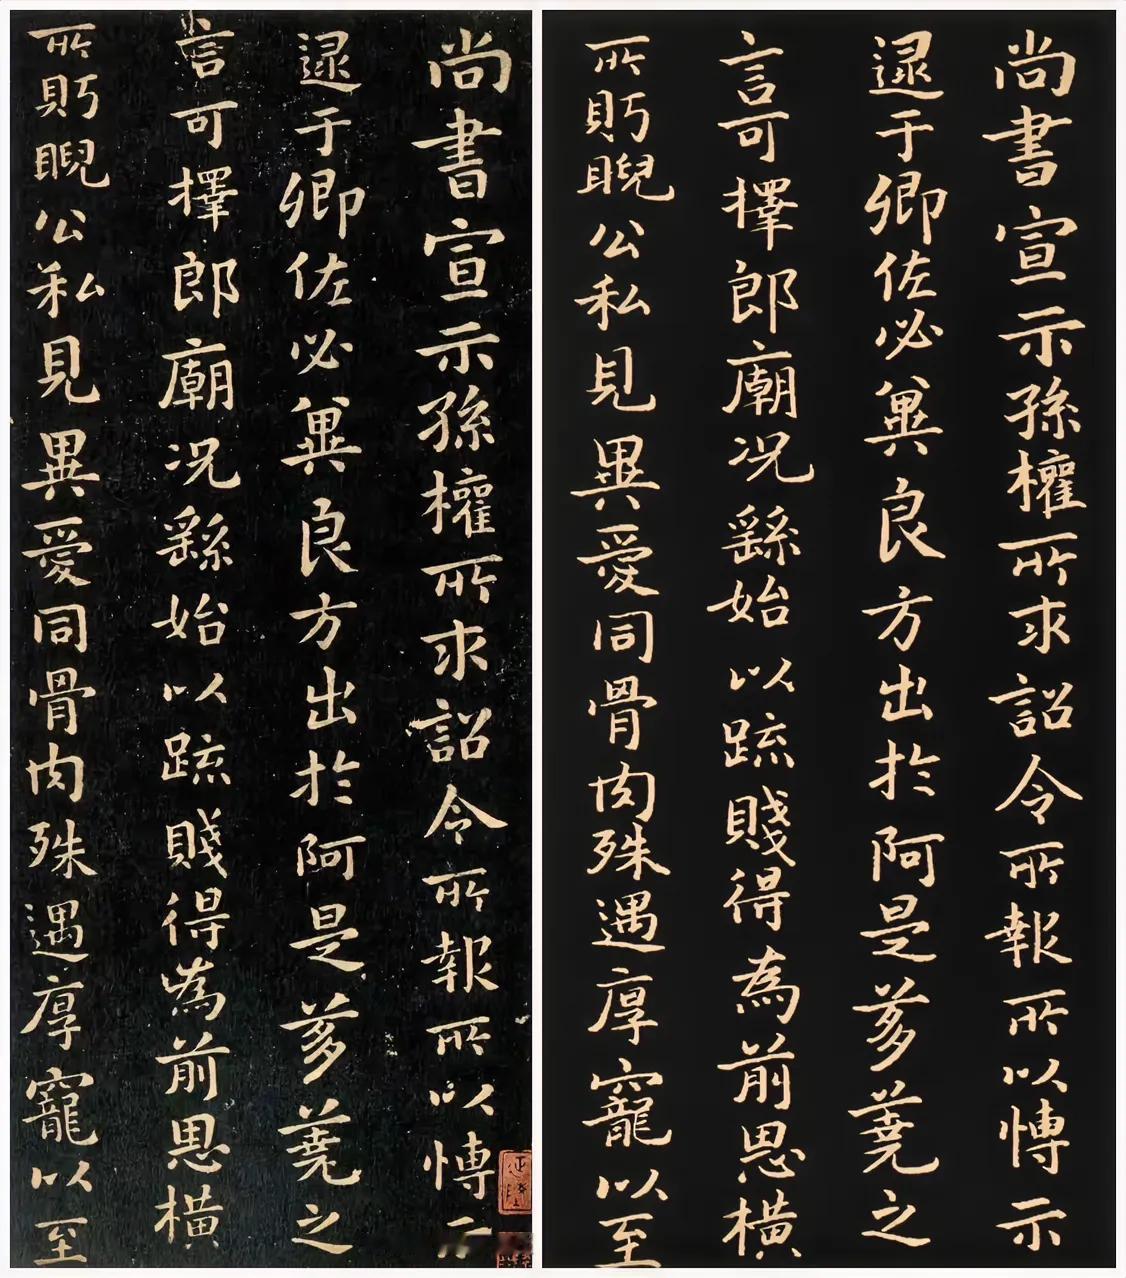 尚書宣示孫權所求詔令所報所以愽示
逮于卿佐必兾良方出於阿是芻蕘之
言可擇郎廟况繇始以疏賤得為前恩横
所眄睨公私見異愛同骨肉殊遇厚寵以至
尚書宣示孫權所求詔令所報所以愽示
逮于卿佐必兾良方出於阿是芻蕘之
言可擇郎廟况繇始以疏賤得為前恩横
所眄睨公私見異愛同骨肉殊遇厚寵以至